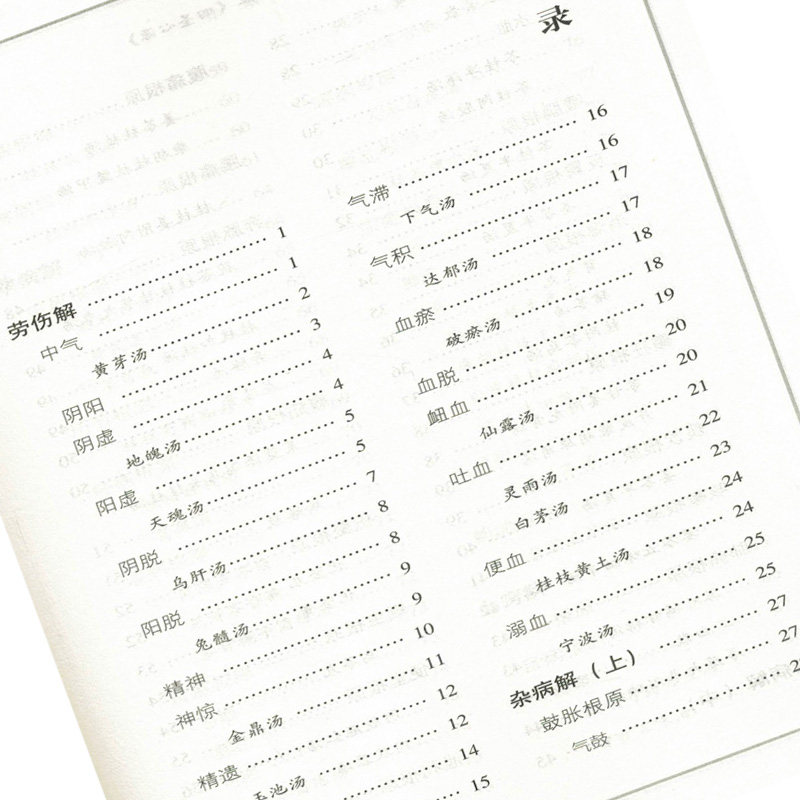 录
劳伤解 1
中气 1
黄芽汤 2
阴阳 3
阴虚 4
地魄汤 4
阳虚 5
天魂汤 5
阴脱 7
乌肝汤 8
阳脱 8
兔髓汤 9
精神 9
神惊 10
金鼎汤 11
精遗 12
玉池汤 12
14
15
气滞 16
下气汤 16
气积 17
达郁汤 17
血瘀 18
破瘀汤 18
血脱 19
衄血 20
仙露汤 20
吐血 21
灵雨汤 22
白茅汤 23
便血 24
桂枝黄土汤 24
溺血 25
宁波汤 25
杂病解（上） 27
鼓胀根原 27
气鼓